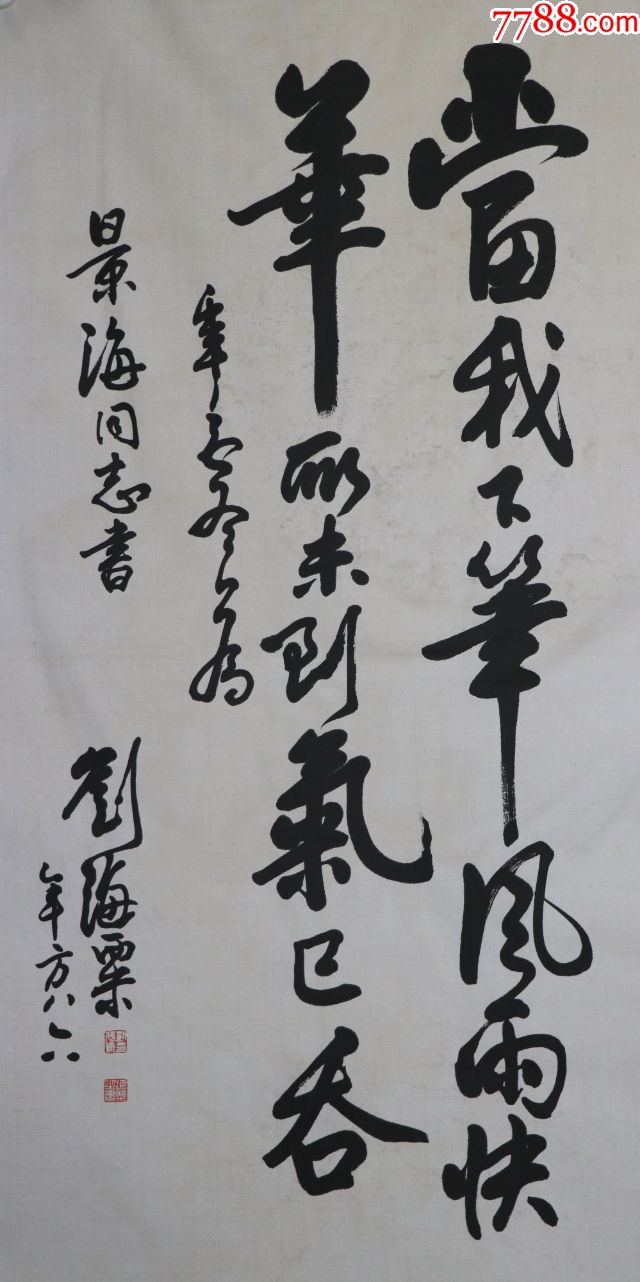 當我下筆風雨快
華所未到氣已吞
景海同志書
劉海粟
年方八六
7788.com